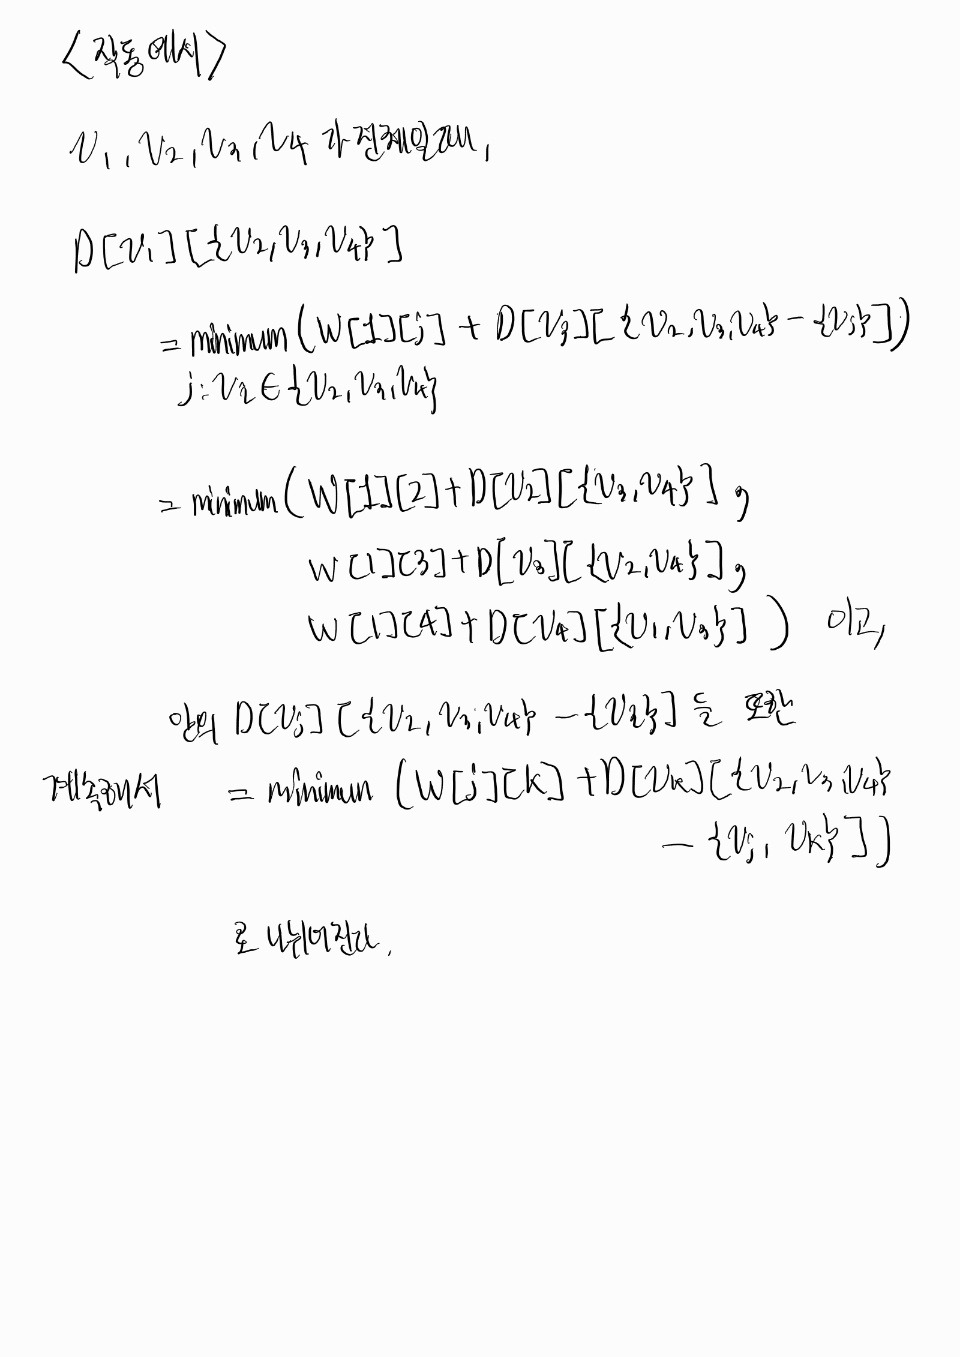 <작동예시>
v₁, v₂, v₃, v₄ 가 전체일때,
D[v₁][{v₂,v₃,v₄}]
= minimum(W[1][j] + D[vj][{v₂,v₃,v₄} - {vj}])
j:v₂∈{v₂,v₃,v₄}
= minimum(W[1][2]+D[v₂][{v₃,v₄}],
W[1][3]+D[v₃][{v₂,v₄}],
W[1][4]+D[v₄][{v₁,v₃}]) 이고,
안의 D[vj][{v₂,v₃,v₄} - {vj}]들 또한
계속해서 = minimun (W[j][k]+D[vk][{v₂,v₃,v₄}
- {vj, vk}])
로 나뉘어진다.